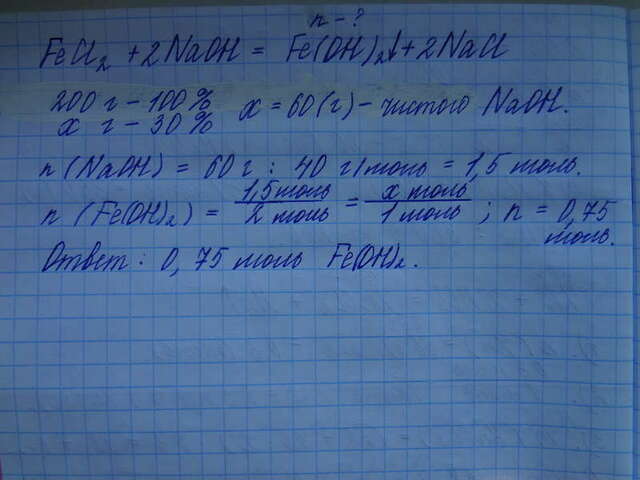 n - ?
FeCl₂ + 2NaOH = Fe(OH)₂↓ + 2NaCl
200 г - 100 %
x г - 30 % x = 60 (г) - чистого NaOH.
n (NaOH) = 60 г : 40 г/моль = 1,5 моль.
n (Fe(OH)₂) = 1,5 моль / 2 моль = x моль / 1 моль ; n = 0,75
моль.
Ответ : 0,75 моль Fe(OH)₂.